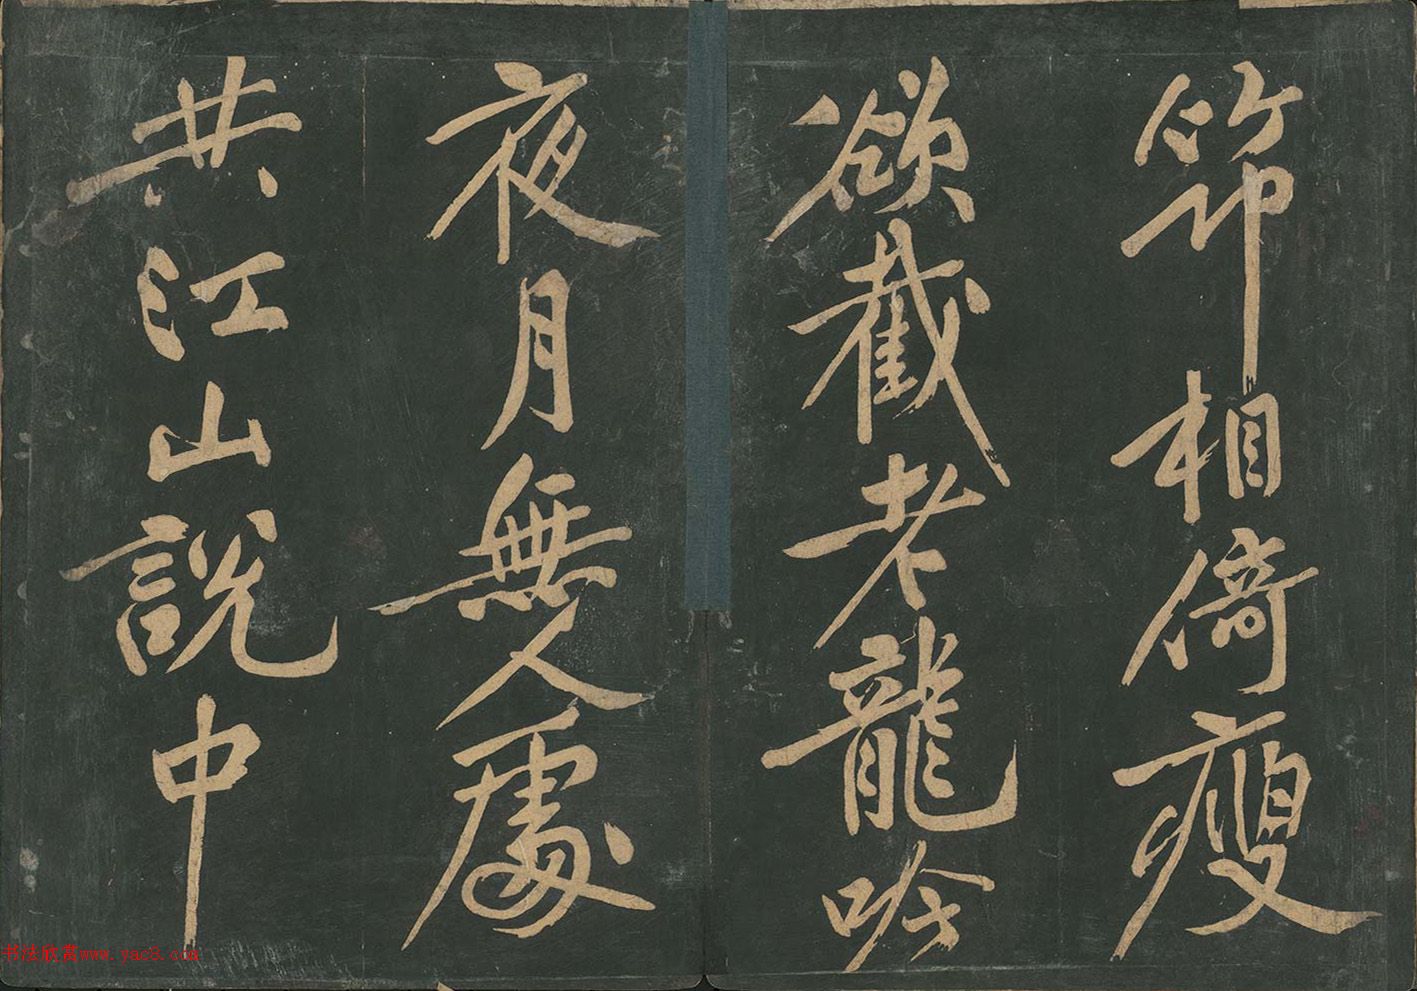 筇相倚瘦
欲截老龍吟
夜月無人處
共江山說中
书法欣赏www.yac8.com